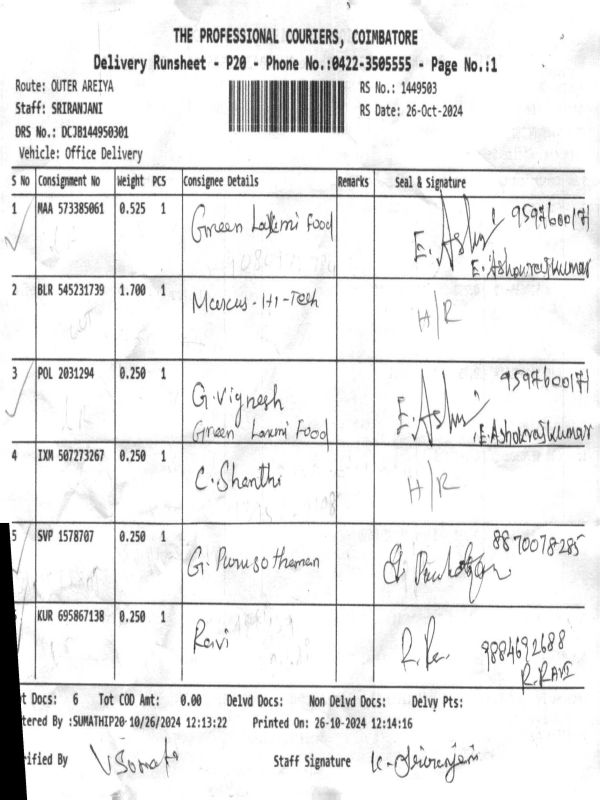 THE PROFESSIONAL COURIERS, COIMBATORE
Delivery Runsheet - P20 - Phone No.:0422-3505555 - Page No.:1
Route: OUTER AREIYA
RS No.: 1449503
Staff: SRIRANJANI
RS Date: 26-Oct-2024
DRS No.: DCJB144950301
Vehicle: Office Delivery
S No Consignment No Weight PCS Consignee Details Remarks Seal & Signature
1 MAA 573385061 0.525 1 Green Laxmi Food E. Ashi 9597600171
E. Ashokrajkumar
2 BLR 545231739 1.700 1 Marcus-Hi-Tech H/R
3 POL 2031294 0.250 1 G. Vignesh E. Ashi 9597600171
Green Laxmi Food E. Ashokrajkumar
4 IXM 507273267 0.250 1 C. Shanthi H/R
5 SVP 1578707 0.250 1 G. Purusothaman 8870078285
KUR 695867138 0.250 1 Ravi R. Ra 9884692688
R. RAVI
t Docs: 6 Tot COD Amt: 0.00 Delvd Docs: Non Delvd Docs: Delvy Pts:
tered By :SUMATHIP20-10/26/2024 12:13:22 Printed On: 26-10-2024 12:14:16
ified By Staff Signature